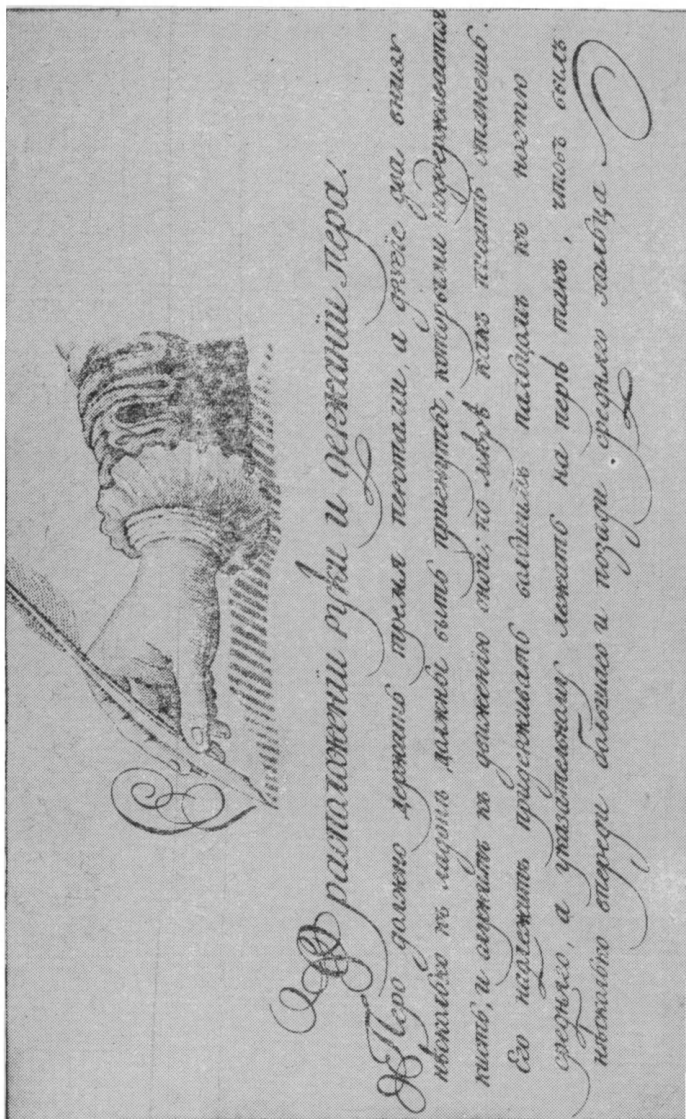 О расположенїи руки и держанїи пера.
Перо должно держать тремя перстами, а другїе два внизу
нѣсколько къ ладонѣ должны быть пригнуты, которыми поддерживается
кисть, и служитъ къ движенїю оной, по мѣрѣ какъ писать станешь.
Его надлежитъ придерживать большимъ пальцомъ къ ногтю
средняго, а указательному лежать на перѣ такъ, чтобъ былъ
нѣсколько впереди большаго и позади средняго пальца